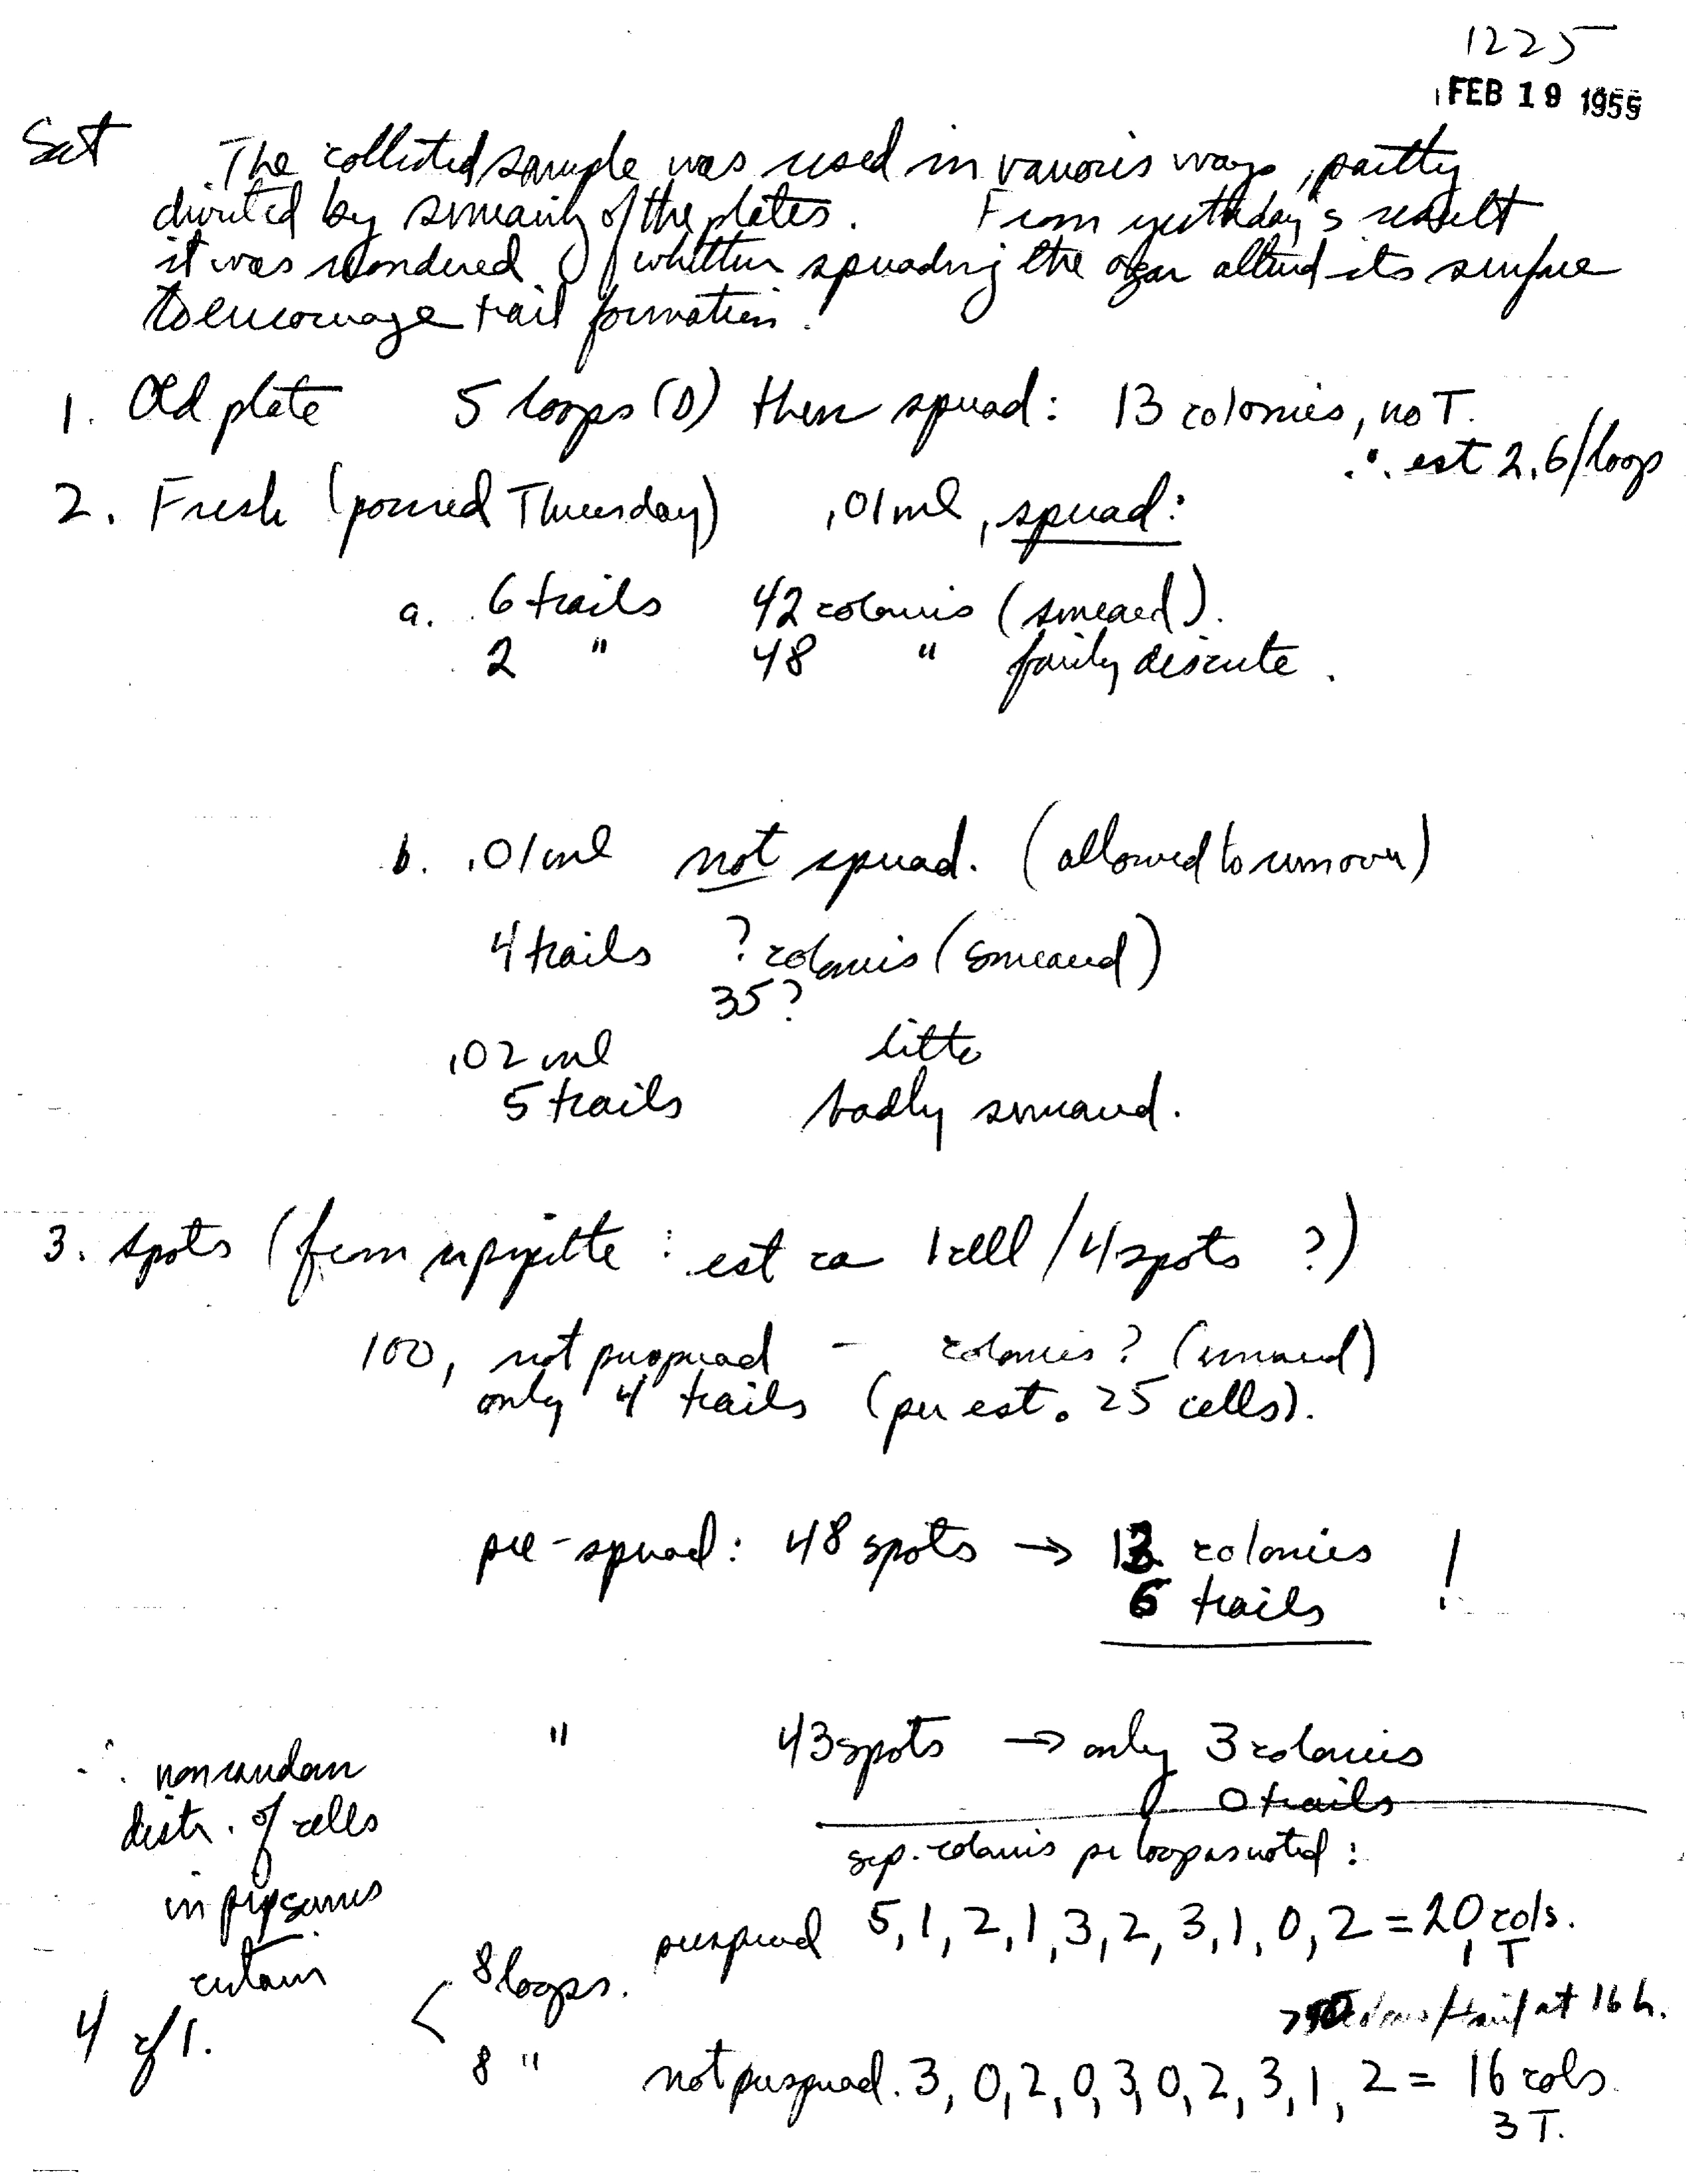 1225
FEB 19 1955
Sat The collected sample was used in various ways, partly
divided by smearing of the plates. From yesterday's result
it was wondered whether spreading the agar altered its surface
to encourage trail formation.
1. Old plate 5 loops (D) then spread: 13 colonies, no T.
∴ est 2.6/loop
2. Fresh (poured Thursday) .01 ml, spread:
a. 6 trails 42 colonies (smeared).
2 " 48 " fairly discrete.
b. .01 ml not spread. (allowed to run over)
4 trails ? colonies (smeared)
35?
.02 ml ditto
5 trails badly smeared.
3. Spots (from pipette : est ca 1 cell / 4 spots ?)
100, not prespread - colonies? (smeared)
only 4 trails (per est. 25 cells).
pre-spread: 48 spots → 13 colonies !
6 trails
" 43 spots → only 3 colonies
0 trails
∴ nonrandom
distr. of cells
in
certain
sep. colonies per loop as noted:
4 cf 1. < 8 loops. prespread 5, 1, 2, 1, 3, 2, 3, 1, 0, 2 = 20 cols.
1 T
/trail at 16 h.
8 " not prespread. 3, 0, 2, 0, 3, 0, 2, 3, 1, 2 = 16 cols.
3 T.